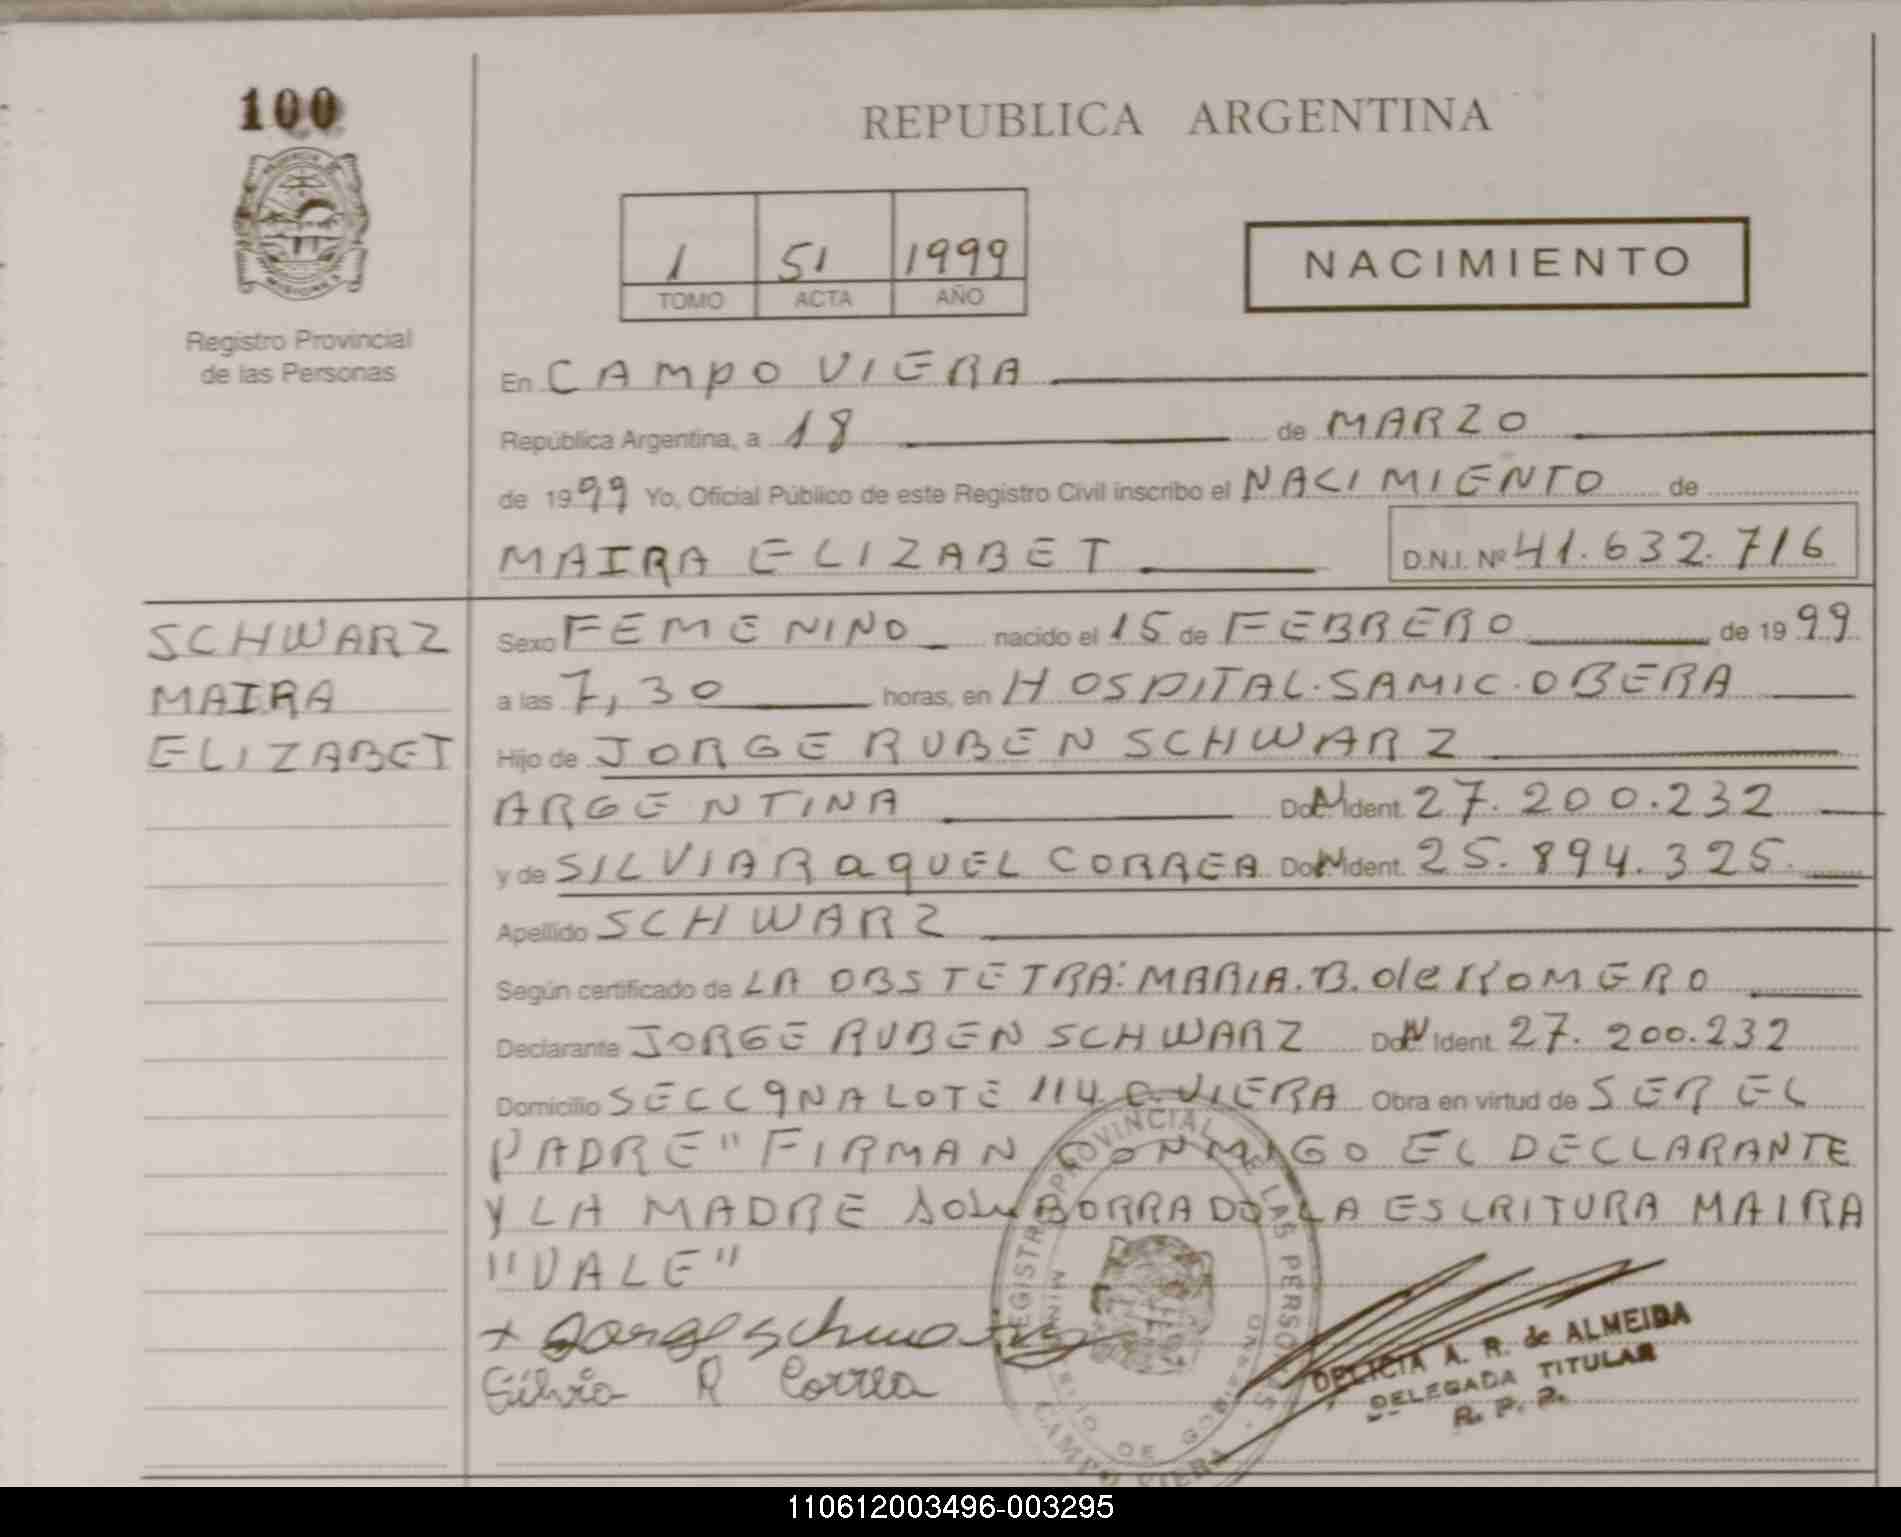 100
REPUBLICA ARGENTINA
1 51 1999
TOMO ACTA AÑO
NACIMIENTO
Registro Provincial
de las Personas
En CAMPO VIERA
República Argentina, a 18 de MARZO
de 1999 Yo, Oficial Público de este Registro Civil inscribo el NACIMIENTO de
MAIRA ELIZABET D.N.I. Nº 41.632.716
SCHWARZ
MAIRA
ELIZABET
Sexo FEMENINO nacido el 15 de FEBRERO de 1999
a las 7,30 horas, en HOSPITAL.SAMIC.OBERA
Hijo de JORGE RUBEN SCHWARZ
ARGENTINA Doc. Ident. 27.200.232
y de SILVIA RaqUEL CORREA Doc. Ident. 25.894.325.
Apellido SCHWARZ
Según certificado de LA OBSTETRA: MARIA.B. de ROMERO
Declarante JORGE RUBEN SCHWARZ Doc. Ident. 27.200.232
Domicilio SECC 9NA LOTE 114 C. VIERA Obra en virtud de SER EL
PADRE" FIRMAN CONMIGO EL DECLARANTE
Y LA MADRE BORRADO LA ESCRITURA MAIRA
"VALE"
+ Jorge Schwarz
Silvia R Correa
REGISTRO PROVINCIAL DE LAS PERSONAS
CAMPO VIERA
DELICIA A. R. de ALMEIDA
DELEGADA TITULAR
R. P. P.
110612003496-003295